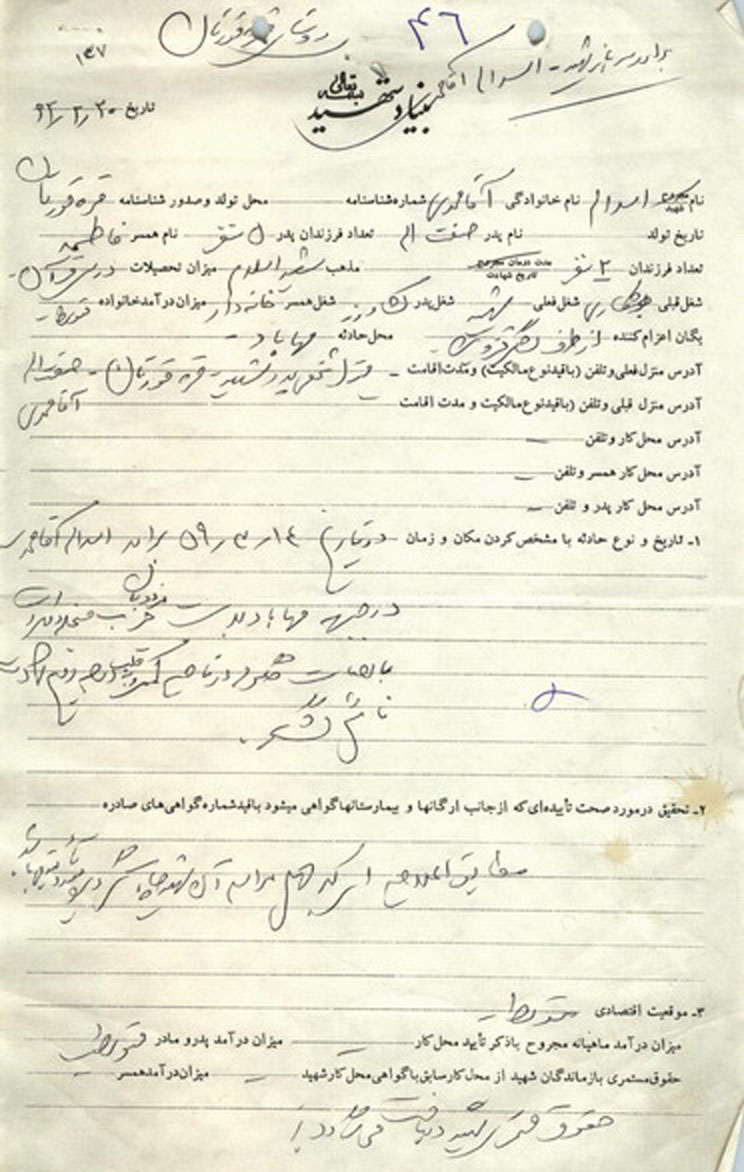 روستای قره قورتان
۴۶
برادر پاسدار شهید - اسداله آقامحمدی
۱۳۷
بسمه تعالی
بنیاد شهید
تاریخ ۶۲/۲/۲۰
نام مجروح شهید اسداله نام خانوادگی آقامحمدی شماره شناسنامه محل تولد و صدور شناسنامه قره قورتان
تاریخ تولد نام پدر صفت اله تعداد فرزندان پدر ۵ نفر نام همسر فاطمه
تعداد فرزندان ۲ نفر مدت درمان مجروح تاریخ شهادت مذهب شیعه اسلام میزان تحصیلات درسی قرآن
شغل قبلی شغل فعلی شغل پدر کشاورز شغل همسر خانه دار میزان درآمد خانواده متوسط
یگان اعزام کننده از طرف لشگر قزوین محل حادثه مهاباد
آدرس منزل فعلی و تلفن (با قید نوع مالکیت) و مدت اقامت - منزل شخصی پدر شهید - قره قورتان - صفت اله
آدرس منزل قبلی و تلفن (با قید نوع مالکیت و مدت اقامت آقامحمدی
آدرس محل کار و تلفن -
آدرس محل کار همسر و تلفن -
آدرس محل کار پدر و تلفن -
۱- تاریخ و نوع حادثه با مشخص کردن مکان و زمان در تاریخ ۱۴/۳/۵۹ برادر اسداله آقامحمدی
در جبهه مهاباد بدست مزدوران حزب منحله دمکرات
۲- تحقیق در مورد صحت تأییده‌ای که از جانب ارگانها و بیمارستانها گواهی میشود با قید شماره گواهی‌های صادره
۳- موقعیت اقتصادی متوسط
میزان درآمد ماهیانه مجروح با ذکر تأیید محل کار - میزان درآمد پدر و مادر متوسط
حقوق مستمری بازماندگان شهید از محل کار سابق با گواهی محل کار شهید - میزان درآمد همسر -
حقوق شهید دریافت می دارد